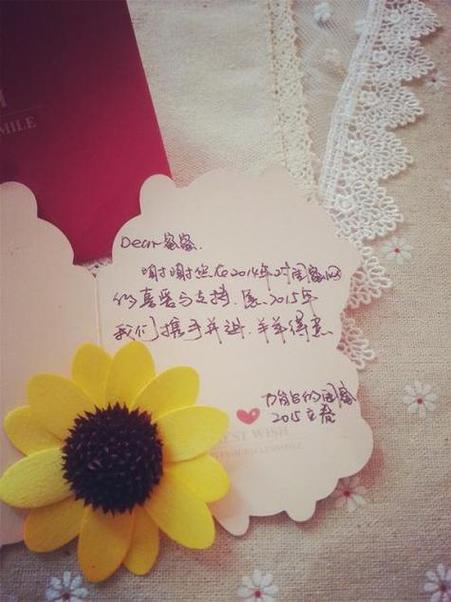 SMILE
Dear 蜜蜜.
谢谢您在2014年对闺蜜网
的喜爱与支持.愿2015年
我们携手并进.羊羊得意
的闺蜜
2015立春
BEST WISH